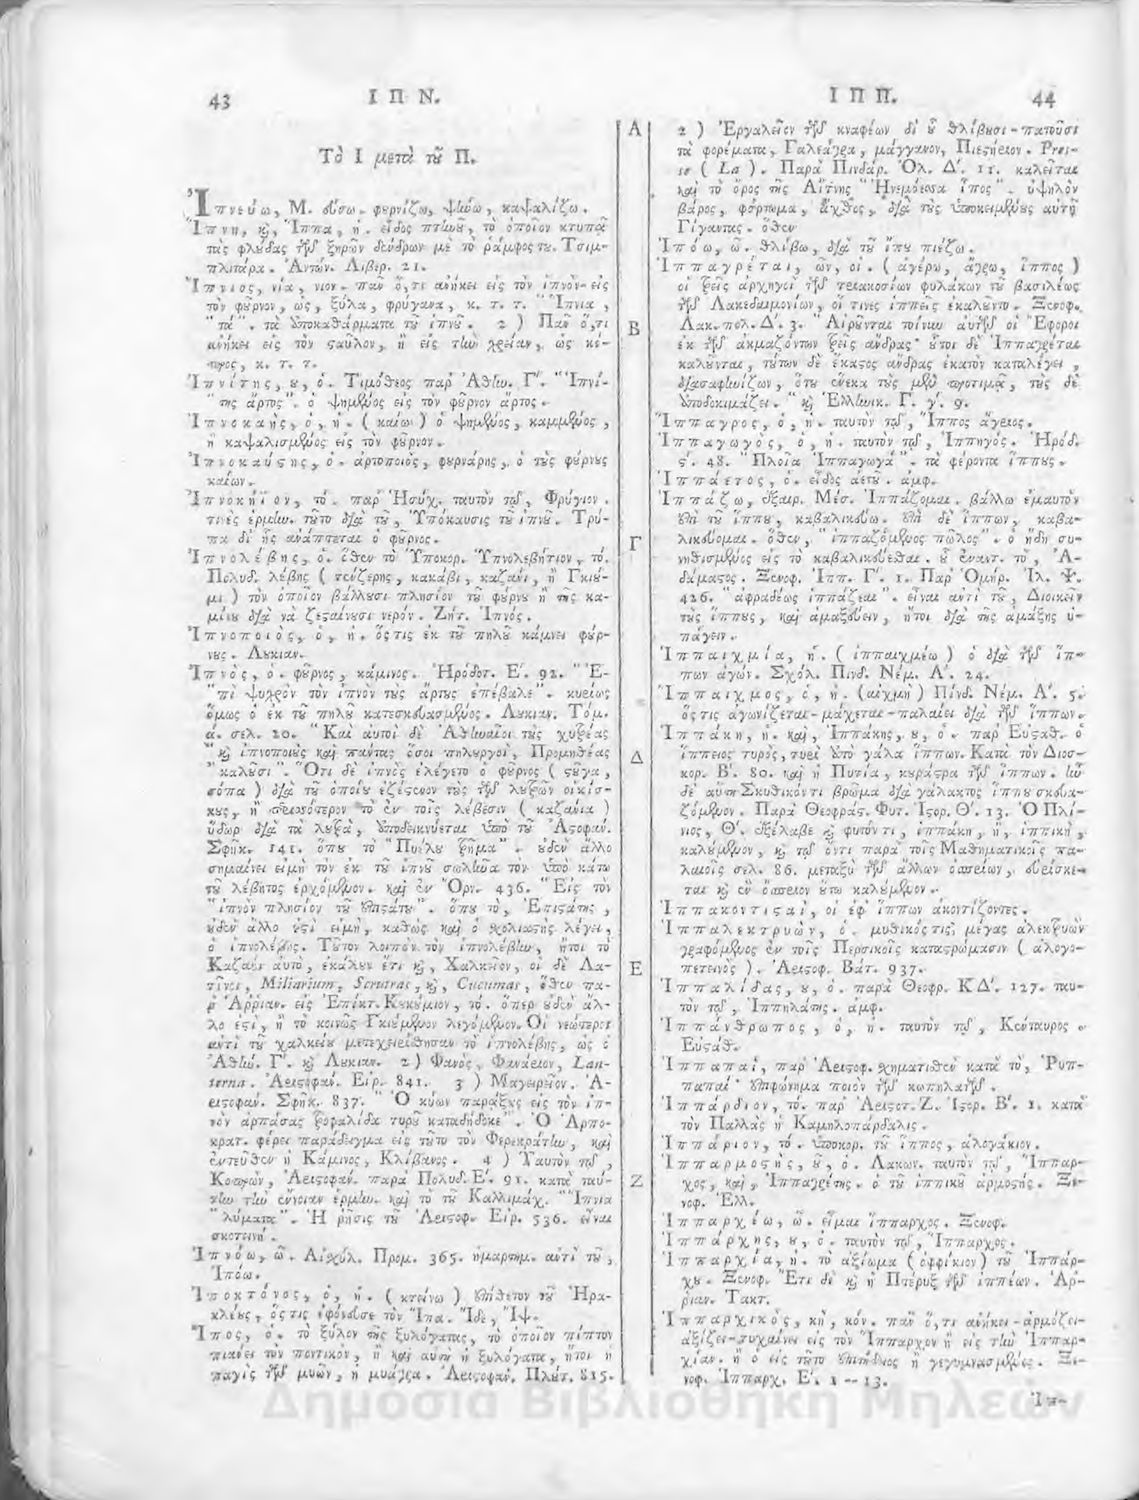 43
Ι Π Ν.
Τὸ Ι μετὰ τοῦ Π.
Ἰπνεύω, Μ. εύσω. φουρνίζω, ψήνω, καψαλίζω.
Ἵπνη, καὶ, Ἵππα, ἡ. εἶδος πτηνοῦ, τὸ ὁποῖον κτυπᾷ
τὰς φλούδας τῶν ξηρῶν δένδρων μὲ τὸ ῥάμφος του. Τσιμ-
πλιτάρα. Ἀντών. Λιβερ. 21.
Ἵπνιος, νία, νιον. πᾶν ὅ,τι ἀνήκει εἰς τὸν ἰπνὸν-εἰς
τὸν φοῦρνον, ὡς, ξύλα, φρύγανα, κ. τ. τ. "Ἴπνια,
"τά". τὰ ἀποκαθάρματα τοῦ ἰπνοῦ. 2) Πᾶν ὅ,τι
ἀνήκει εἰς τὸν σταῦλον, ἢ εἰς τὴν χρείαν, ὡς κό-
προς, κ. τ. τ.
Ἰπνίτης, ου, ὁ. Τιμόθεος παρ' Ἀθην. Γ'. "Ἰπνί-
"της ἄρτος". ὁ ψημένος εἰς τὸν φοῦρνον ἄρτος.
Ἰπνοκαὴς, ὁ, ἡ. (καίω) ὁ ψημένος, καμμένος,
ἢ καψαλισμένος εἰς τὸν φοῦρνον.
Ἰπνοκαύστης, ὁ. ἀρτοποιὸς, φουρνάρης, ὁ τοὺς φούρνους
καίων.
Ἰπνοκήϊον, τό. παρ' Ἡσύχ. ταυτὸν τῷ, Φρύγιον.
τινὲς ἑρμην. τοῦτο διὰ τοῦ, Ὑπόκαυσις τοῦ ἰπνοῦ. Τρύ-
πα δι' ἧς ἀνάπτεται ὁ φοῦρνος.
Ἰπνολέβης, ὁ. ὅθεν τὸ Ὑποκορ. Ὑπνολεβήτιον, τό.
Πολυδ. λέβης (τεύζερης, κακάβι, καζάνι, ἢ Γκιού-
μι) τὸν ὁποῖον βάλλουσι πλησίον τοῦ φούρνου ἢ τῆς κα-
μίνου διὰ νὰ ζεσταίνουσι νερόν. Ζήτ. Ἰπνός.
Ἰπνοποιὸς, ὁ, ἡ. ὅστις ἐκ τοῦ πηλοῦ κάμνει φούρ-
νους. Λουκιαν.
Ἰπνὸς, ὁ. φοῦρνος, κάμινος. Ἡρόδοτ. Ε'. 92. "Ἐ-
"πὶ ψυχρὸν τὸν ἰπνὸν τοὺς ἄρτους ἐπέβαλε". κυρίως
ὅμως ὁ ἐκ τοῦ πηλοῦ κατεσκευασμένος. Λουκιαν. Τόμ.
ά. σελ. 20. "Καὶ αὐτοὶ δὲ Ἀθηναῖοι τοὺς χυτρέας
"καὶ ἰπνοποιοὺς καὶ πάντας ὅσοι πηλουργοὶ, Προμηθέας
"καλοῦσι". Ὅτι δὲ ἰπνὸς ἐλέγετο ὁ φοῦρνος (στοῦγα,
σόπα) διὰ τοῦ ὁποίου ἐζέσταινον τοὺς τῶν λουτρῶν οἰκίσ-
κους, ἢ πιθανώτερον τὸ ἐν τοῖς λέβεσιν (καζάνια)
ὕδωρ διὰ τὰ λουτρὰ, ἀποδεικνύεται ἀπὸ τοῦ Ἀριστοφάν.
Σφηκ. 141. ὅπου τὸ "Πυέλου τρῆμα". οὐδὲν ἄλλο
σημαίνει εἰμὴ τὸν ἐκ τοῦ ἰπνοῦ σωλῆνα τὸν ἀπὸ κάτω
τοῦ λέβητος ἐρχόμενον. καὶ ἐν Ὄρν. 436. "Εἰς τὸν
"ἰπνὸν πλησίον τοῦ ἐπιστάτου". ὅπου τὸ, Ἐπιστάτης,
οὐδὲν ἄλλο ἐστὶ εἰμὴ, καθὼς καὶ ὁ σχολιαστὴς λέγει,
ὁ ἰπνολέβης. Τοῦτον λοιπὸν τὸν ἰπνολέβην, ἤτοι τὸ
Καζάνι αὐτὸ, ἐκάλουν ἔτι καὶ, Χαλκεῖον, οἱ δὲ Λα-
τῖνοι, Miliarium, Scrutrat, καὶ, Cucumar, ὅθεν πα-
ρ' Ἀρριαν. εἰς Ἐπίκτ. Κουκούμιον, τό. ὅπερ οὐδὲν ἄλ-
λο ἐστὶ, ἢ τὸ κοινῶς Γκιούμιον λεγόμενον. Οἱ νεώτεροι
ἀντὶ τοῦ χαλκείου μετεχειρίσθησαν τὸ ἰπνολέβης, ὡς ὁ
Ἀθήν. Γ'. καὶ Λουκιαν. 2) Φανὸς, Φανάριον, Lan-
terna. Ἀριστοφάν. Εἰρ. 841. 3) Μαγειρεῖον. Ἀ-
ριστοφάν. Σφηκ. 837. "Ὁ κύων παράξας εἰς τὸν ἰπ-
νὸν ἁρπάσας τροφαλίδα τυροῦ κατεδήδοκε". Ὁ Ἁρπο-
κρατ. φέρει παράδειγμα εἰς τοῦτο τὸν Φερεκράτην, καὶ
ἐντεῦθεν ἡ Κάμινος, Κλίβανος. 4) Ταυτὸν τῷ,
Κοπρών, Ἀριστοφάν. παρὰ Πολυδ. Ε'. 91. κατὰ ταύ-
την τὴν ἔννοιαν ἑρμην. καὶ τὸ τοῦ Καλλιμάχ. "Ἴπνια
"λύματα". Ἡ ῥῆσις τοῦ Ἀριστοφ. Εἰρ. 536. εἶναι
σκοτεινή.
Ἰπνόω, ῶ. Αἰσχύλ. Προμ. 365. ἡμαρτημ. ἀντὶ τοῦ,
Ἰπόω.
Ἰποκτόνος, ὁ, ἡ. (κτείνω) ἐπίθετον τοῦ Ἡρα-
κλέους, ὅστις ἐφόνευσε τὸν Ἵπα. Ἰδὲ, Ἴψ.
Ἵπος, ὁ. τὸ ξύλον τῆς ξυλόγατας, τὸ ὁποῖον πίπτον
πιάνει τὸν ποντικὸν, ἢ καὶ αὐτὴ ἡ ξυλόγατα, ἤτοι ἡ
παγὶς τῶν μυῶν, ἡ μυάγρα. Ἀριστοφάν. Πλούτ. 815.
Α
Β
Γ
Δ
Ε
Ζ
Ι Π Π.
44
2) Ἐργαλεῖον τῶν κναφέων δι' οὗ θλίβουσι-πατοῦσι
τὰ φορέματα, Γαλεάγρα, μάγγανον, Πιεστήριον. Pres-
se (La). Παρὰ Πινδάρ. Ὀλ. Δ'. 11. καλεῖται
καὶ τὸ ὄρος τῆς Αἴτνης "Ἠνεμόεσσα ἶπος". ὑψηλὸν
βάρος, φόρτωμα, ἄχθος, διὰ τοὺς ὑποκειμένους αὐτῇ
Γίγαντας. ὅθεν
Ἰπόω, ῶ. θλίβω, διὰ τοῦ ἵπου πιέζω.
Ἱππαγρέται, ῶν, οἱ. (ἀγέρω, ἄγρω, ἵππος)
οἱ τρεῖς ἀρχηγοὶ τῶν τριακοσίων φυλάκων τοῦ βασιλέως
τῶν Λακεδαιμονίων, οἵ τινες ἱππεῖς ἐκαλοῦντο. Ξενοφ.
Λακ. πολ. Δ'. 3. "Αἱροῦνται τοίνυν αὐτῶν οἱ Ἔφοροι
ἐκ τῶν ἀκμαζόντων τρεῖς ἄνδρας· οὗτοι δὲ Ἱππαγρέται
καλοῦνται, τούτων δὲ ἕκαστος ἄνδρας ἑκατὸν καταλέγει,
διασαφηνίζων, ὅτου ἕνεκα τοὺς μὲν προτιμᾷ, τοὺς δὲ
ἀποδοκιμάζει." καὶ Ἑλληνικ. Γ. γ'. 9.
Ἵππαγρος, ὁ, ἡ. ταυτὸν τῷ, Ἵππος ἄγριος.
Ἱππαγωγὸς, ὁ, ἡ. ταυτὸν τῷ, Ἱππηγός. Ἡρόδ.
ϛ'. 48. "Πλοῖα Ἱππαγωγά". τὰ φέροντα ἵππους.
Ἱππάετος, ὁ. εἶδος ἀετοῦ. ἀμφ.
Ἱππάζω, ἐξαιρ. Μέσ. Ἱππάζομαι. βάλλω ἐμαυτὸν
ἐπὶ τοῦ ἵππου, καβαλικεύω. ἐπὶ δὲ ἵππων, καβα-
λικεύομαι. ὅθεν, "ἱππαζόμενος πῶλος". ὁ ἤδη συ-
νηθισμένος εἰς τὸ καβαλικεύεσθαι. οὗ ἐναντ. τὸ, Ἀ-
δάμαστος. Ξενοφ. Ἱππ. Γ'. 1. Παρ' Ὁμήρ. Ἰλ. Ψ.
426. "ἀφραδέως ἱππάζεαι". εἶναι ἀντὶ τοῦ, Διοικεῖν
τοὺς ἵππους, καὶ ἁμαξεύειν, ἤτοι διὰ τῆς ἁμάξης ὑ-
πάγειν.
Ἱππαιχμία, ἡ. (ἱππαιχμέω) ὁ διὰ τῶν ἵπ-
πων ἀγών. Σχόλ. Πινδ. Νέμ. Α'. 24.
Ἵππαιχμος, ὁ, ἡ. (αἰχμὴ) Πίνδ. Νέμ. Α'. 5.
ὅστις ἀγωνίζεται-μάχεται-παλαίει διὰ τῶν ἵππων.
Ἱππάκη, ἡ. καὶ, Ἱππάκης, ου, ὁ. παρ' Εὐσταθ. ὁ
ἵππειος τυρὸς, τυρὶ ἀπὸ γάλα ἵππων. Κατὰ τὸν Διοσ-
κορ. Β'. 80. καὶ ἡ Πυτία, κυράστρα τῶν ἵππων. ἦν
δὲ αὕτη Σκυθικόν τι βρῶμα διὰ γάλακτος ἵππου σκευα-
ζόμενον. Παρὰ Θεοφράστ. Φυτ. Ἱστορ. Θ'. 13. Ὁ Πλί-
νιος, Θ'. ἐξέλαβε καὶ φυτόν τι, ἱππάκη, ἢ, ἱππική,
καλούμενον, καὶ τῷ ὄντι παρὰ τοῖς Μαθηματικοῖς πα-
λαιοῖς σελ. 86. μεταξὺ τῶν ἄλλων ὀσπρίων, εὑρίσκε-
ται καὶ ἓν ὄσπριον οὕτω καλούμενον.
Ἱππακοντισταὶ, οἱ ἐφ' ἵππων ἀκοντίζοντες.
Ἱππαλεκτρυὼν, ὁ. μυθικός τις, μέγας ἀλεκτρυὼν
γραφόμενος ἐν τοῖς Περσικοῖς καταστρώμασιν (ἀλογο-
πετεινὸς). Ἀριστοφ. Βάτ. 937.
Ἱππαλίδας, ου, ὁ. παρὰ Θεοφρ. ΚΔ'. 127. ταυ-
τὸν τῷ, Ἱππηλάτης. ἀμφ.
Ἱππάνθρωπος, ὁ, ἡ. ταυτὸν τῷ, Κένταυρος.
Εὐσταθ.
Ἱππαπαὶ, παρ' Ἀριστοφ. σχηματισθὲν κατὰ τὸ, Ῥυπ-
παπαί· ἐπιφώνημα ποιὸν τῶν κωπηλατῶν.
Ἱππάρδιον, τό. παρ' Ἀριστοτ. Ζ. Ἱστορ. Β'. 1. κατὰ
τὸν Παλλὰς ἡ Καμηλοπάρδαλις.
Ἱππάριον, τό. ὑποκορ. τοῦ ἵππος, ἀλογάκιον.
Ἱππαρμοστὴς, οῦ, ὁ. Λακων. ταυτὸν τῷ, Ἵππαρ-
χος, καὶ, Ἱππαγρέτης. ὁ τοῦ ἱππικοῦ ἁρμοστής. Ξε-
νοφ. Ἑλλ.
Ἱππαρχέω, ῶ. εἶμαι ἵππαρχος. Ξενοφ.
Ἱππάρχης, ου, ὁ. ταυτὸν τῷ, Ἵππαρχος.
Ἱππαρχία, ἡ. τὸ ἀξίωμα (ὀφφίκιον) τοῦ Ἱππάρ-
χου. Ξενοφ. Ἔτι δὲ καὶ ἡ Πτέρυξ τῶν ἱππέων. Ἀρ-
ριαν. Τακτ.
Ἱππαρχικὸς, κὴ, κόν. πᾶν ὅ,τι ἀνήκει-ἁρμόζει-
ἀξίζει-τυχαίνει εἰς τὸν Ἵππαρχον ἢ εἰς τὴν Ἱππαρ-
χίαν. ἢ ὁ εἰς τοῦτο ἐπιτήδειος ἢ γεγυμνασμένος. Ξε-
νοφ. Ἱππαρχ. Ε'. 1 -- 13.
Ἱπ-
Δημόσια Βιβλιοθήκη Μηλεών